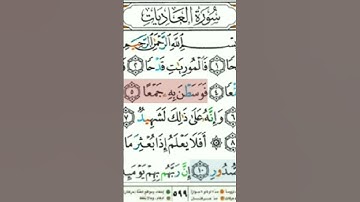 سُورَةُ العَادِيَاتِ
ـسْـــمِ ٱللَّهِ ٱلرَّحْمَٰنِ ٱلرَّحِيـــمِ
ـحًا ١ فَٱلْمُورِيَٰتِ قَدْحًا ٢
ـعًا ٤ فَوَسَطْنَ بِهِۦ جَمْعًا ٥
٦ وَإِنَّهُۥ عَلَىٰ ذَٰلِكَ لَشَهِيدٌ ٧
٨ أَفَلَا يَعْلَمُ إِذَا بُعْثِرَ مَا
ـصُّدُورِ ١٠ إِنَّ رَبَّهُم بِهِمْ يَوْمَئِـ
٥٩٩